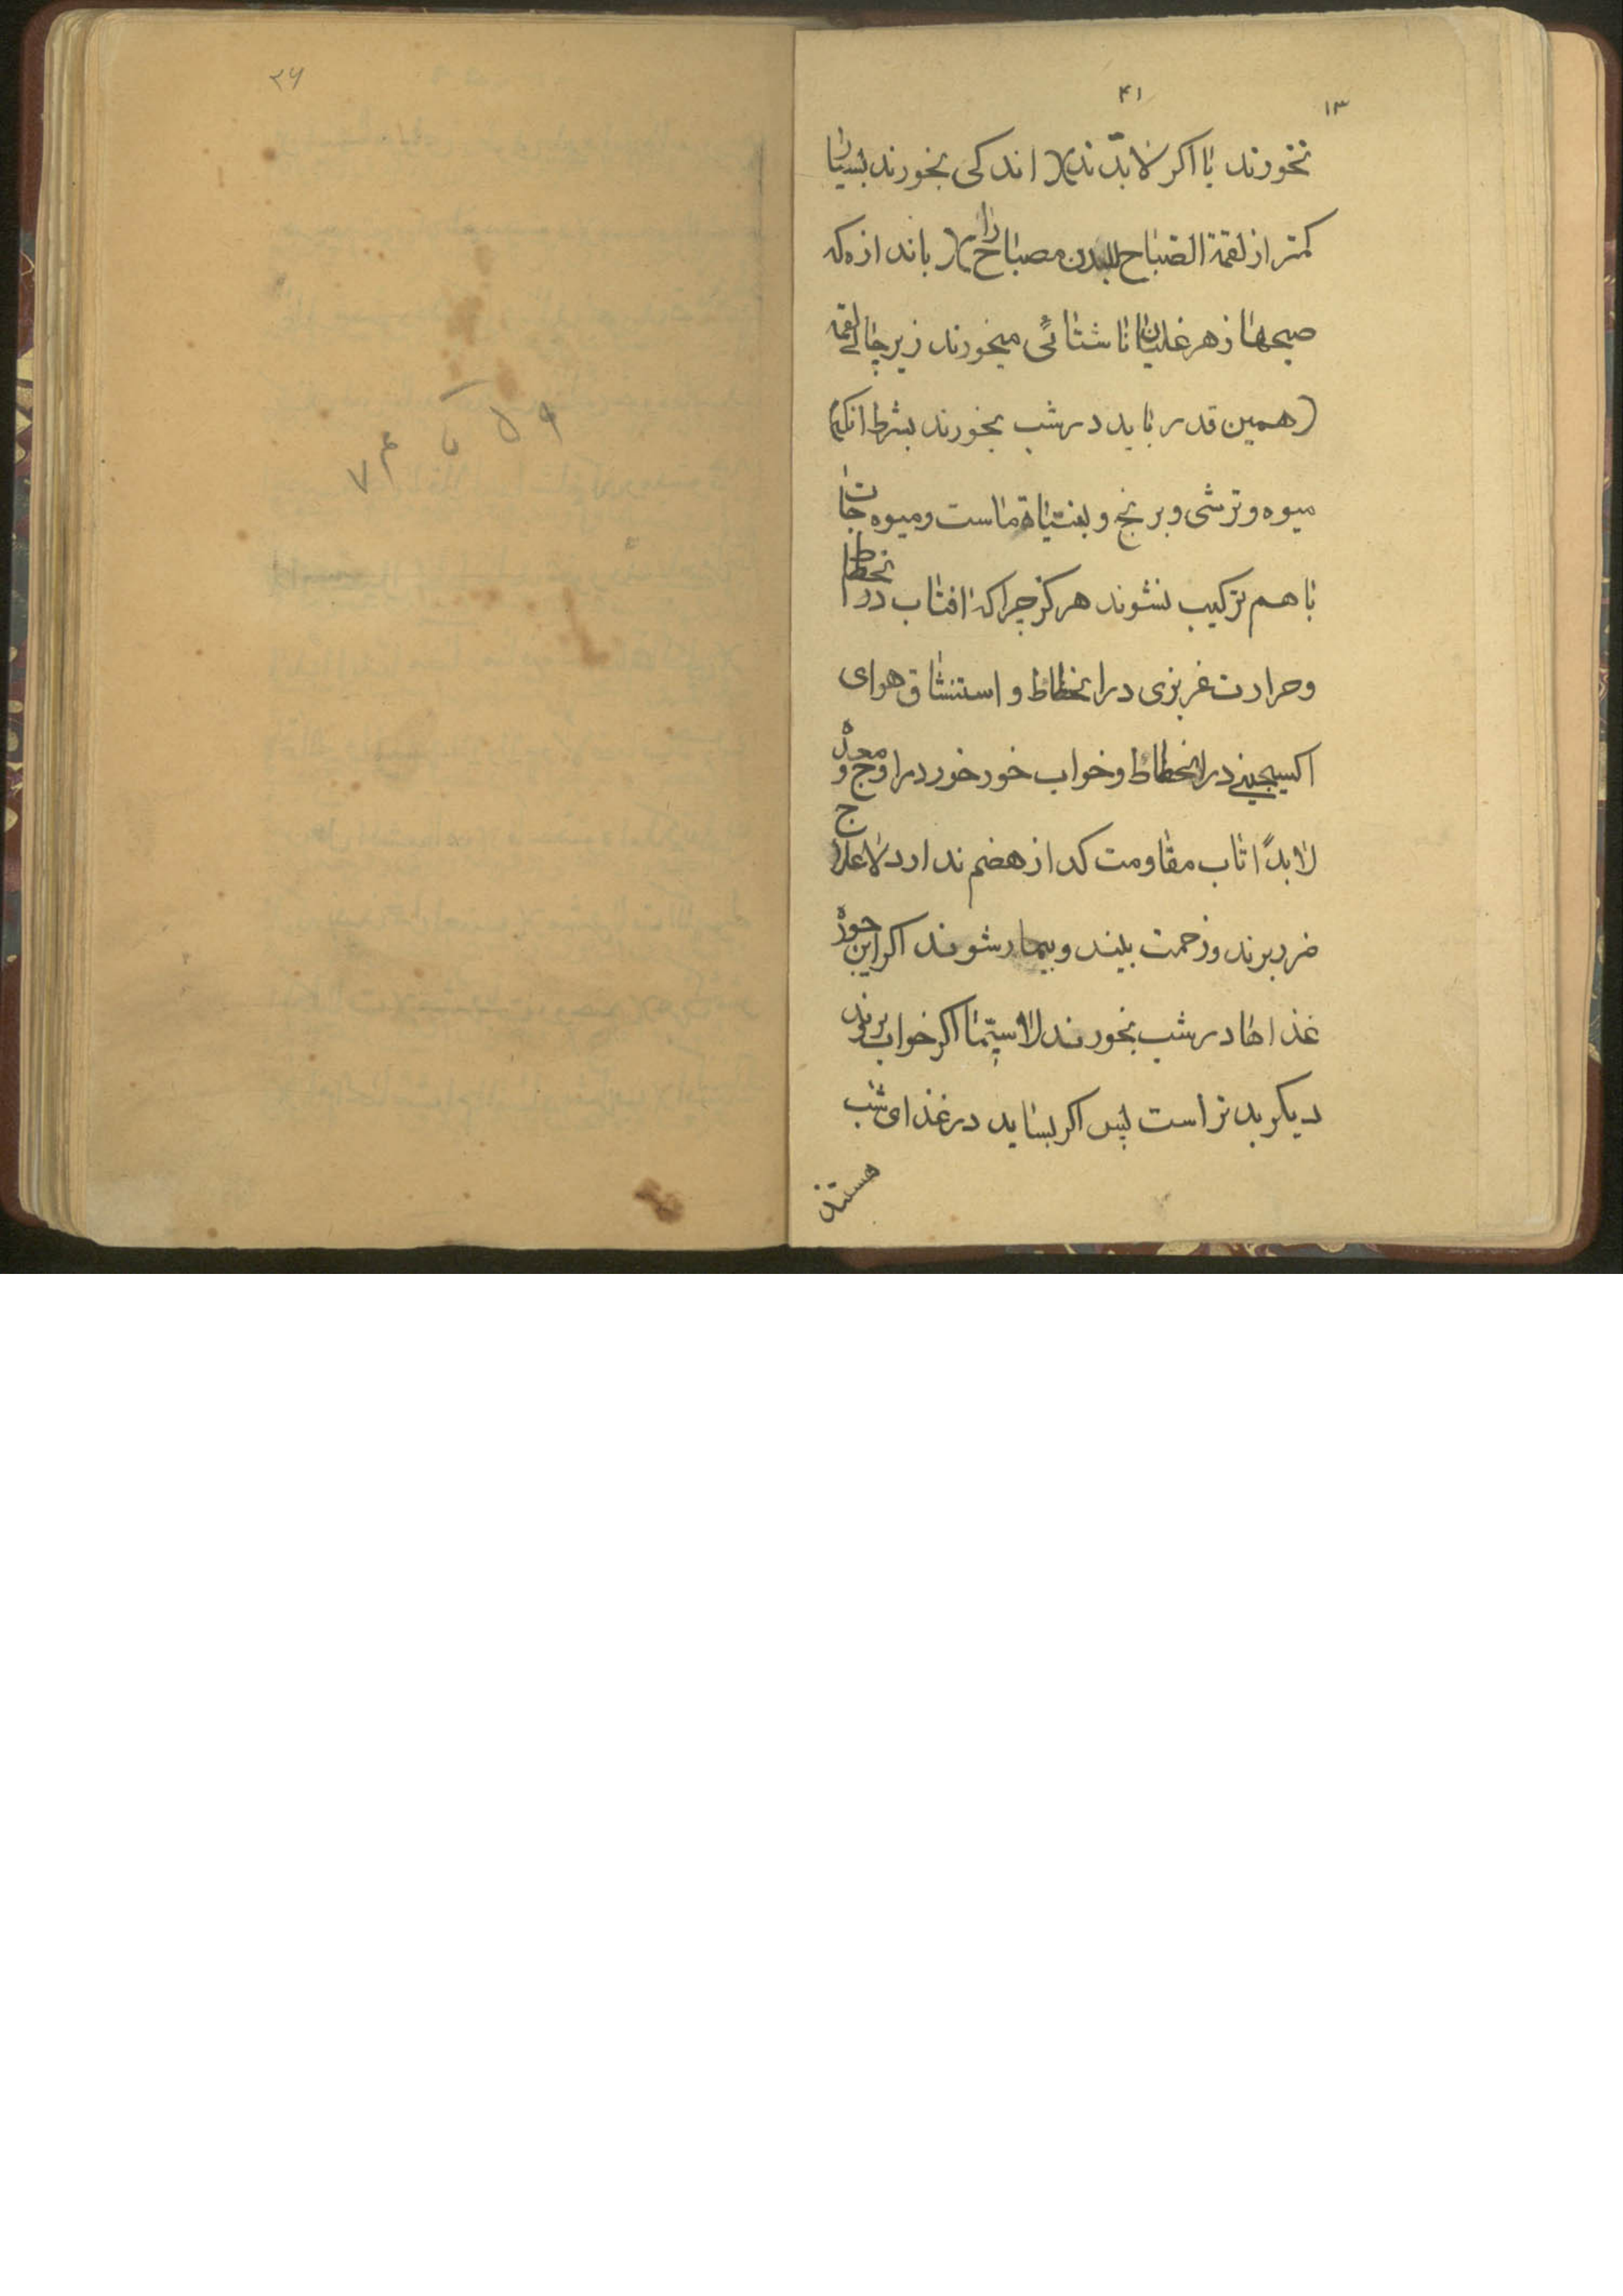 ۴۱
۱۳
نخورند یا اگر لابدّند اندکی بخورند بسیار
کمتر از لقمة الصباح للبدن مصباح را باندازه که
صبحها زهر غلیان ناشتائی میخورند زیر چائی لقمه
(همین قدر باید در شب بخورند بشرط انکه)
میوه و ترشی و برنج و ماست و میوه جات
با هم ترکیب نشوند هرکز چرا که افتاب در انحطاط
و حرارت غریزی در انحطاط و استنشاق هوای
اکسیجینی در انحطاط و خواب خور خور در اوج و معده
لابداً تاب مقاومت کداز هضم ندارد لاعلاج
ضرر برند و زحمت بینند و بیمار شوند اکر این جوره
غذاها در شب بخورند لاسیّما اکر خواب بروند
دیکر بدتر است پس اکر بساید در غذای شب
هستند
۲۶
۷